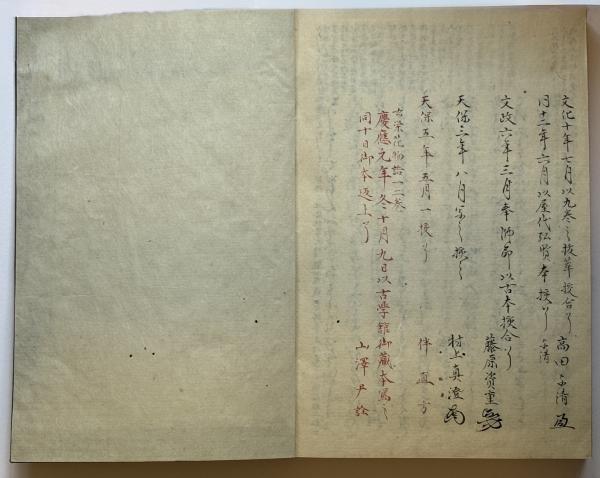 文化十年七月以九巻之抜萃挍合了 高田与清
同十二年六月以屋代弘賢本挍了 与清
文政六年三月奉師命以古本挍合了 藤原資重
天保三年八月写之挍之 村上真澄
天保五年五月一挍了 伴直方
古栄花物語一二巻
慶應元年冬十月九日以古學館御蔵本寫之
同十日御本返上了 山澤